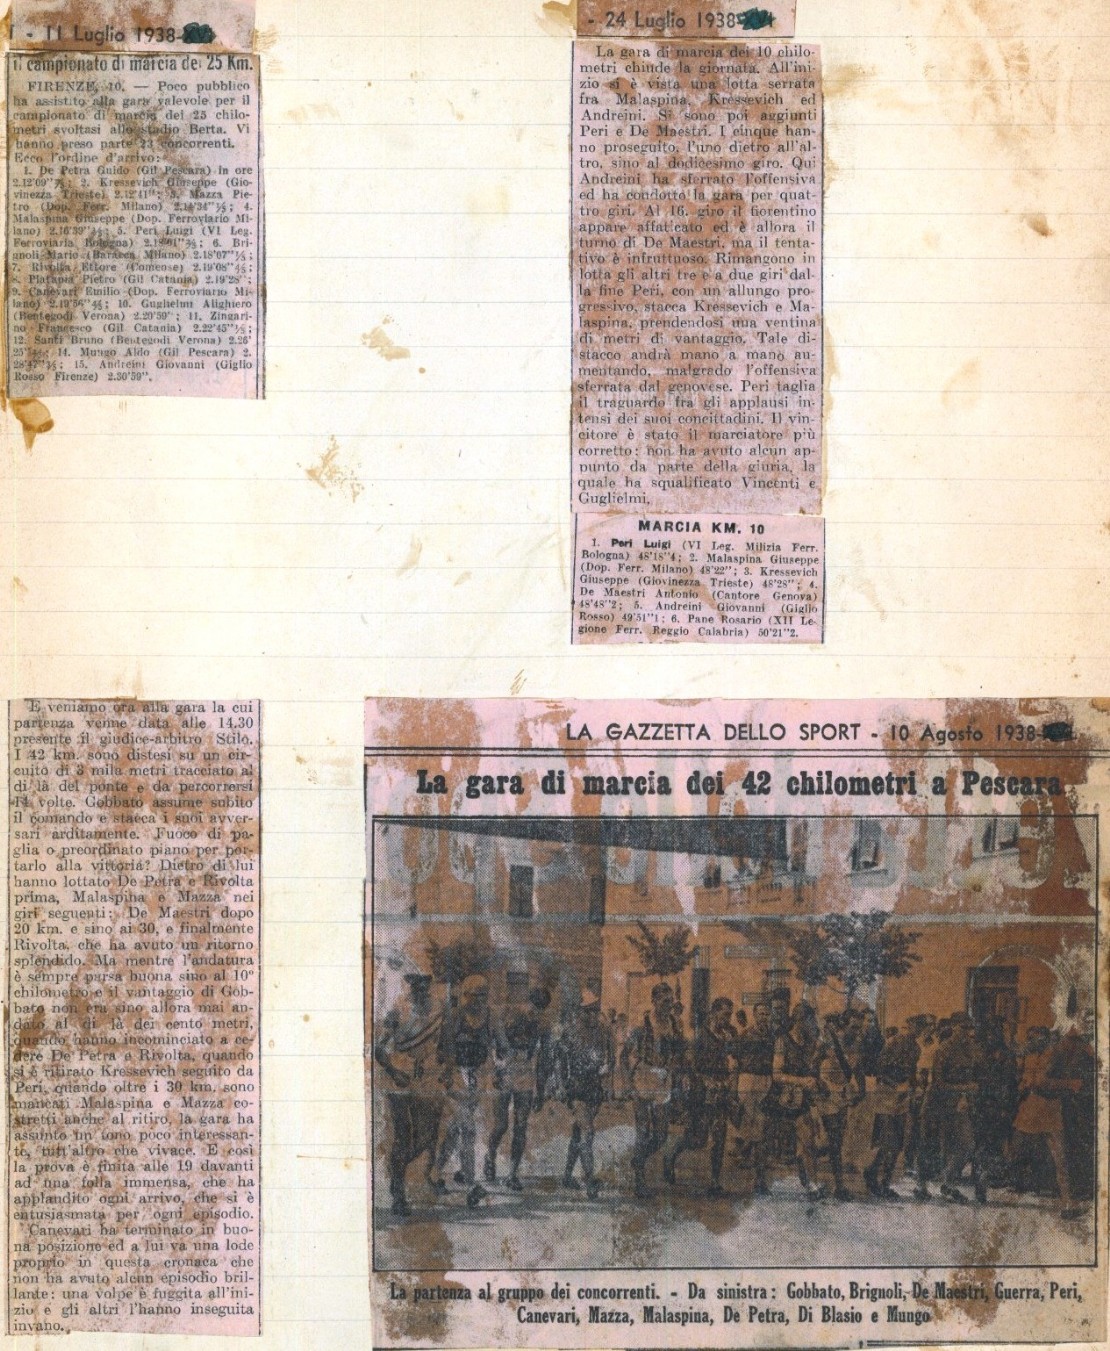 - 11 Luglio 1938-XVI
il campionato di marcia dei 25 Km.
FIRENZE, 10. — Poco pubblico
ha assistito alla gara valevole per il
campionato di marcia dei 25 chilo-
metri svoltasi allo stadio Berta. Vi
hanno preso parte 23 concorrenti.
Ecco l'ordine d'arrivo:
1. De Petra Guido (Gil Pescara) in ore
2.12'09"; 2. Kressevich Giuseppe (Gio-
vinezza Trieste) 2.12'41"; 3. Mazza Pie-
tro (Dop. Ferr. Milano) 2.14'34"; 4.
Malaspina Giuseppe (Dop. Ferroviario Mi-
lano) 2.16'59"; 5. Peri Luigi (VI Leg.
Ferroviaria Bologna) 6. Bri-
gnoli Mario (Baracca Milano) 2.18'07";
7. Rivolta Ettore (Comense) 2.19'08";
8. Platania Pietro (Gil Catania) 2.19'28";
9. Canevari Emilio (Dop. Ferroviario Mi-
lano) 2.19'56"; 10. Guglielmi Alighiero
(Bentegodi Verona) 2.20'59"; 11. Zingari-
no Francesco (Gil Catania) 2.22'45";
12. Santi Bruno (Bentegodi Verona) 2.26'
14. Mungo Aldo (Gil Pescara) 2.
28'47"; 15. Andreini Giovanni (Giglio
Rosso Firenze) 2.30'59".
- 24 Luglio 1938-XVI
La gara di marcia dei 10 chilo-
metri chiude la giornata. All'ini-
zio si è vista una lotta serrata
fra Malaspina, Kressevich ed
Andreini. Si sono poi aggiunti
Peri e De Maestri. I cinque han-
no proseguito, l'uno dietro all'al-
tro, sino al dodicesimo giro. Qui
Andreini ha sferrato l'offensiva
ed ha condotto la gara per quat-
tro giri. Al 16. giro il fiorentino
appare affaticato ed è allora il
turno di De Maestri, ma il tenta-
tivo è infruttuoso. Rimangono in
lotta gli altri tre e a due giri dal-
la fine Peri, con un allungo pro-
gressivo, stacca Kressevich e Ma-
laspina, prendendosi una ventina
di metri di vantaggio. Tale di-
stacco andrà mano a mano au-
mentando, malgrado l'offensiva
sferrata dal genovese. Peri taglia
il traguardo fra gli applausi in-
tensi dei suoi concittadini. Il vin-
citore è stato il marciatore più
corretto: non ha avuto alcun ap-
punto da parte della giuria, la
quale ha squalificato Vincenti e
Guglielmi.
MARCIA KM. 10
1. Peri Luigi (VI Leg. Milizia Ferr.
Bologna) 48'18"4; 2. Malaspina Giuseppe
(Dop. Ferr. Milano) 48'22"; 3. Kressevich
Giuseppe (Giovinezza Trieste) 48'28"; 4.
De Maestri Antonio (Cantore Genova)
48'48"2; 5. Andreini Giovanni (Giglio
Rosso) 49'51"1; 6. Pane Rosario (XII Le-
gione Ferr. Reggio Calabria) 50'21"2.
E veniamo ora alla gara la cui
partenza venne data alle 14.30
presente il giudice-arbitro Stilo.
I 42 km. sono distesi su un cir-
cuito di 3 mila metri tracciato al
di là del ponte e da percorrersi
14 volte. Gobbato assume subito
il comando e stacca i suoi avver-
sari arditamente. Fuoco di pa-
glia o preordinato piano per por-
tarlo alla vittoria? Dietro di lui
hanno lottato De Petra e Rivolta
prima, Malaspina e Mazza nei
giri seguenti; De Maestri dopo
20 km. e sino ai 30, e finalmente
Rivolta, che ha avuto un ritorno
splendido. Ma mentre l'andatura
è sempre parsa buona sino al 10°
chilometro e il vantaggio di Gob-
bato non era sino allora mai an-
dato al di là dei cento metri,
quando hanno incominciato a ce-
dere De Petra e Rivolta, quando
si è ritirato Kressevich seguito da
Peri, quando oltre i 30 km. sono
mancati Malaspina e Mazza co-
stretti anche al ritiro, la gara ha
assunto un tono poco interessan-
te, tutt'altro che vivace. E così
la prova è finita alle 19 davanti
ad una folla immensa, che ha
applaudito ogni arrivo, che si è
entusiasmata per ogni episodio.
Canevari ha terminato in buo-
na posizione ed a lui va una lode
proprio in questa cronaca che
non ha avuto alcun episodio bril-
lante: una volpe è fuggita all'ini-
zio e gli altri l'hanno inseguita
invano.
LA GAZZETTA DELLO SPORT - 10 Agosto 1938-
La gara di marcia dei 42 chilometri a Pescara
La partenza al gruppo dei concorrenti. - Da sinistra: Gobbato, Brignoli, De Maestri, Guerra, Peri,
Canevari, Mazza, Malaspina, De Petra, Di Blasio e Mungo